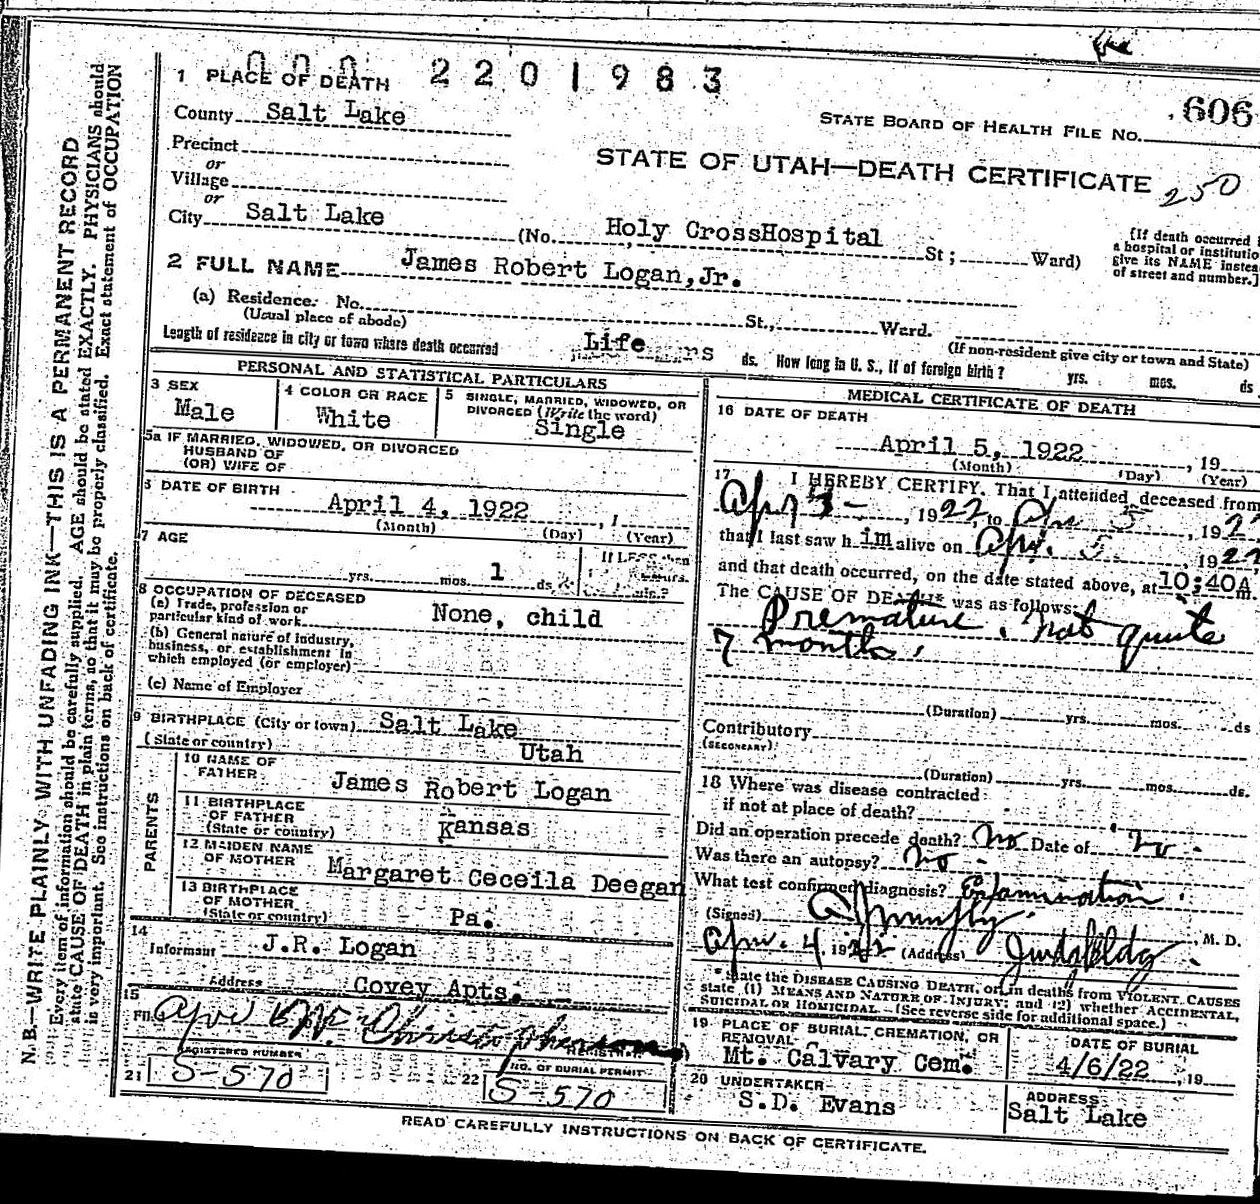 0002201983
1 PLACE OF DEATH
County Salt Lake
STATE BOARD OF HEALTH FILE NO. 606
Precinct
or
STATE OF UTAH—DEATH CERTIFICATE 250
Village
or
City Salt Lake (No. Holy CrossHospital St; Ward)
(If death occurred
a hospital or institutio
give its NAME instea
of street and number.]
2 FULL NAME James Robert Logan, Jr.
(a) Residence. No. St., Ward.
(Usual place of abode) (If non-resident give city or town and State)
Length of residence in city or town where death occurred Life ds. How long in U. S., if of foreign birth? yrs. mos. ds
PERSONAL AND STATISTICAL PARTICULARS
3 SEX
Male
4 COLOR OR RACE
White
5 SINGLE, MARRIED, WIDOWED, OR
DIVORCED (Write the word)
Single
5a IF MARRIED, WIDOWED, OR DIVORCED
HUSBAND OF
(OR) WIFE OF
6 DATE OF BIRTH
April 4, 1922, 1
(Month) (Day) (Year)
7 AGE
yrs. mos. 1 ds.
If LESS than
8 OCCUPATION OF DECEASED
(a) Trade, profession or
particular kind of work None, child
(b) General nature of industry,
business, or establishment in
which employed (or employer)
(c) Name of Employer
9 BIRTHPLACE (City or town) Salt Lake
(State or country) Utah
PARENTS
10 NAME OF
FATHER James Robert Logan
11 BIRTHPLACE
OF FATHER
(State or country) Kansas
12 MAIDEN NAME
OF MOTHER Margaret Ceceila Deegan
13 BIRTHPLACE
OF MOTHER
(State or country) Pa.
14
Informant J.R. Logan
Address Covey Apts.
15
W. Christopherson
REGISTRAR
REGISTERED NUMBER
21 S-570
NO. OF BURIAL PERMIT
22 S-570
MEDICAL CERTIFICATE OF DEATH
16 DATE OF DEATH
April 5, 1922, 19
(Month) (Day) (Year)
17 I HEREBY CERTIFY, That I attended deceased from
, 1922, to Apr 5, 192
that I last saw him alive on Apr. 5 192
and that death occurred, on the date stated above, at 10:40A m.
The CAUSE OF DEATH* was as follows:
Premature. not quite
7 months.
(Duration) yrs. mos. ds
Contributory
(SECONDARY)
(Duration) yrs. mos. ds.
18 Where was disease contracted
if not at place of death?
Did an operation precede death? No Date of no
Was there an autopsy? No
What test confirmed diagnosis? Examination.
(Signed) , M. D.
Apr. 4, 1922 (Address) Judge Bldg.
* State the DISEASE CAUSING DEATH, or, in deaths from VIOLENT CAUSES
state (1) MEANS AND NATURE OF INJURY; and (2) whether ACCIDENTAL,
SUICIDAL OR HOMICIDAL. (See reverse side for additional space.)
19 PLACE OF BURIAL, CREMATION, OR
REMOVAL
Mt. Calvary Cem.
DATE OF BURIAL
4/6/22, 19
20 UNDERTAKER
S.D. Evans
ADDRESS
Salt Lake
READ CAREFULLY INSTRUCTIONS ON BACK OF CERTIFICATE.
N. B.—WRITE PLAINLY WITH UNFADING INK—THIS IS A PERMANENT RECORD
Every item of information should be carefully supplied. AGE should be stated EXACTLY. PHYSICIANS should
state CAUSE OF DEATH in plain terms, so that it may be properly classified. Exact statement of OCCUPATION
is very important. See instructions on back of certificate.